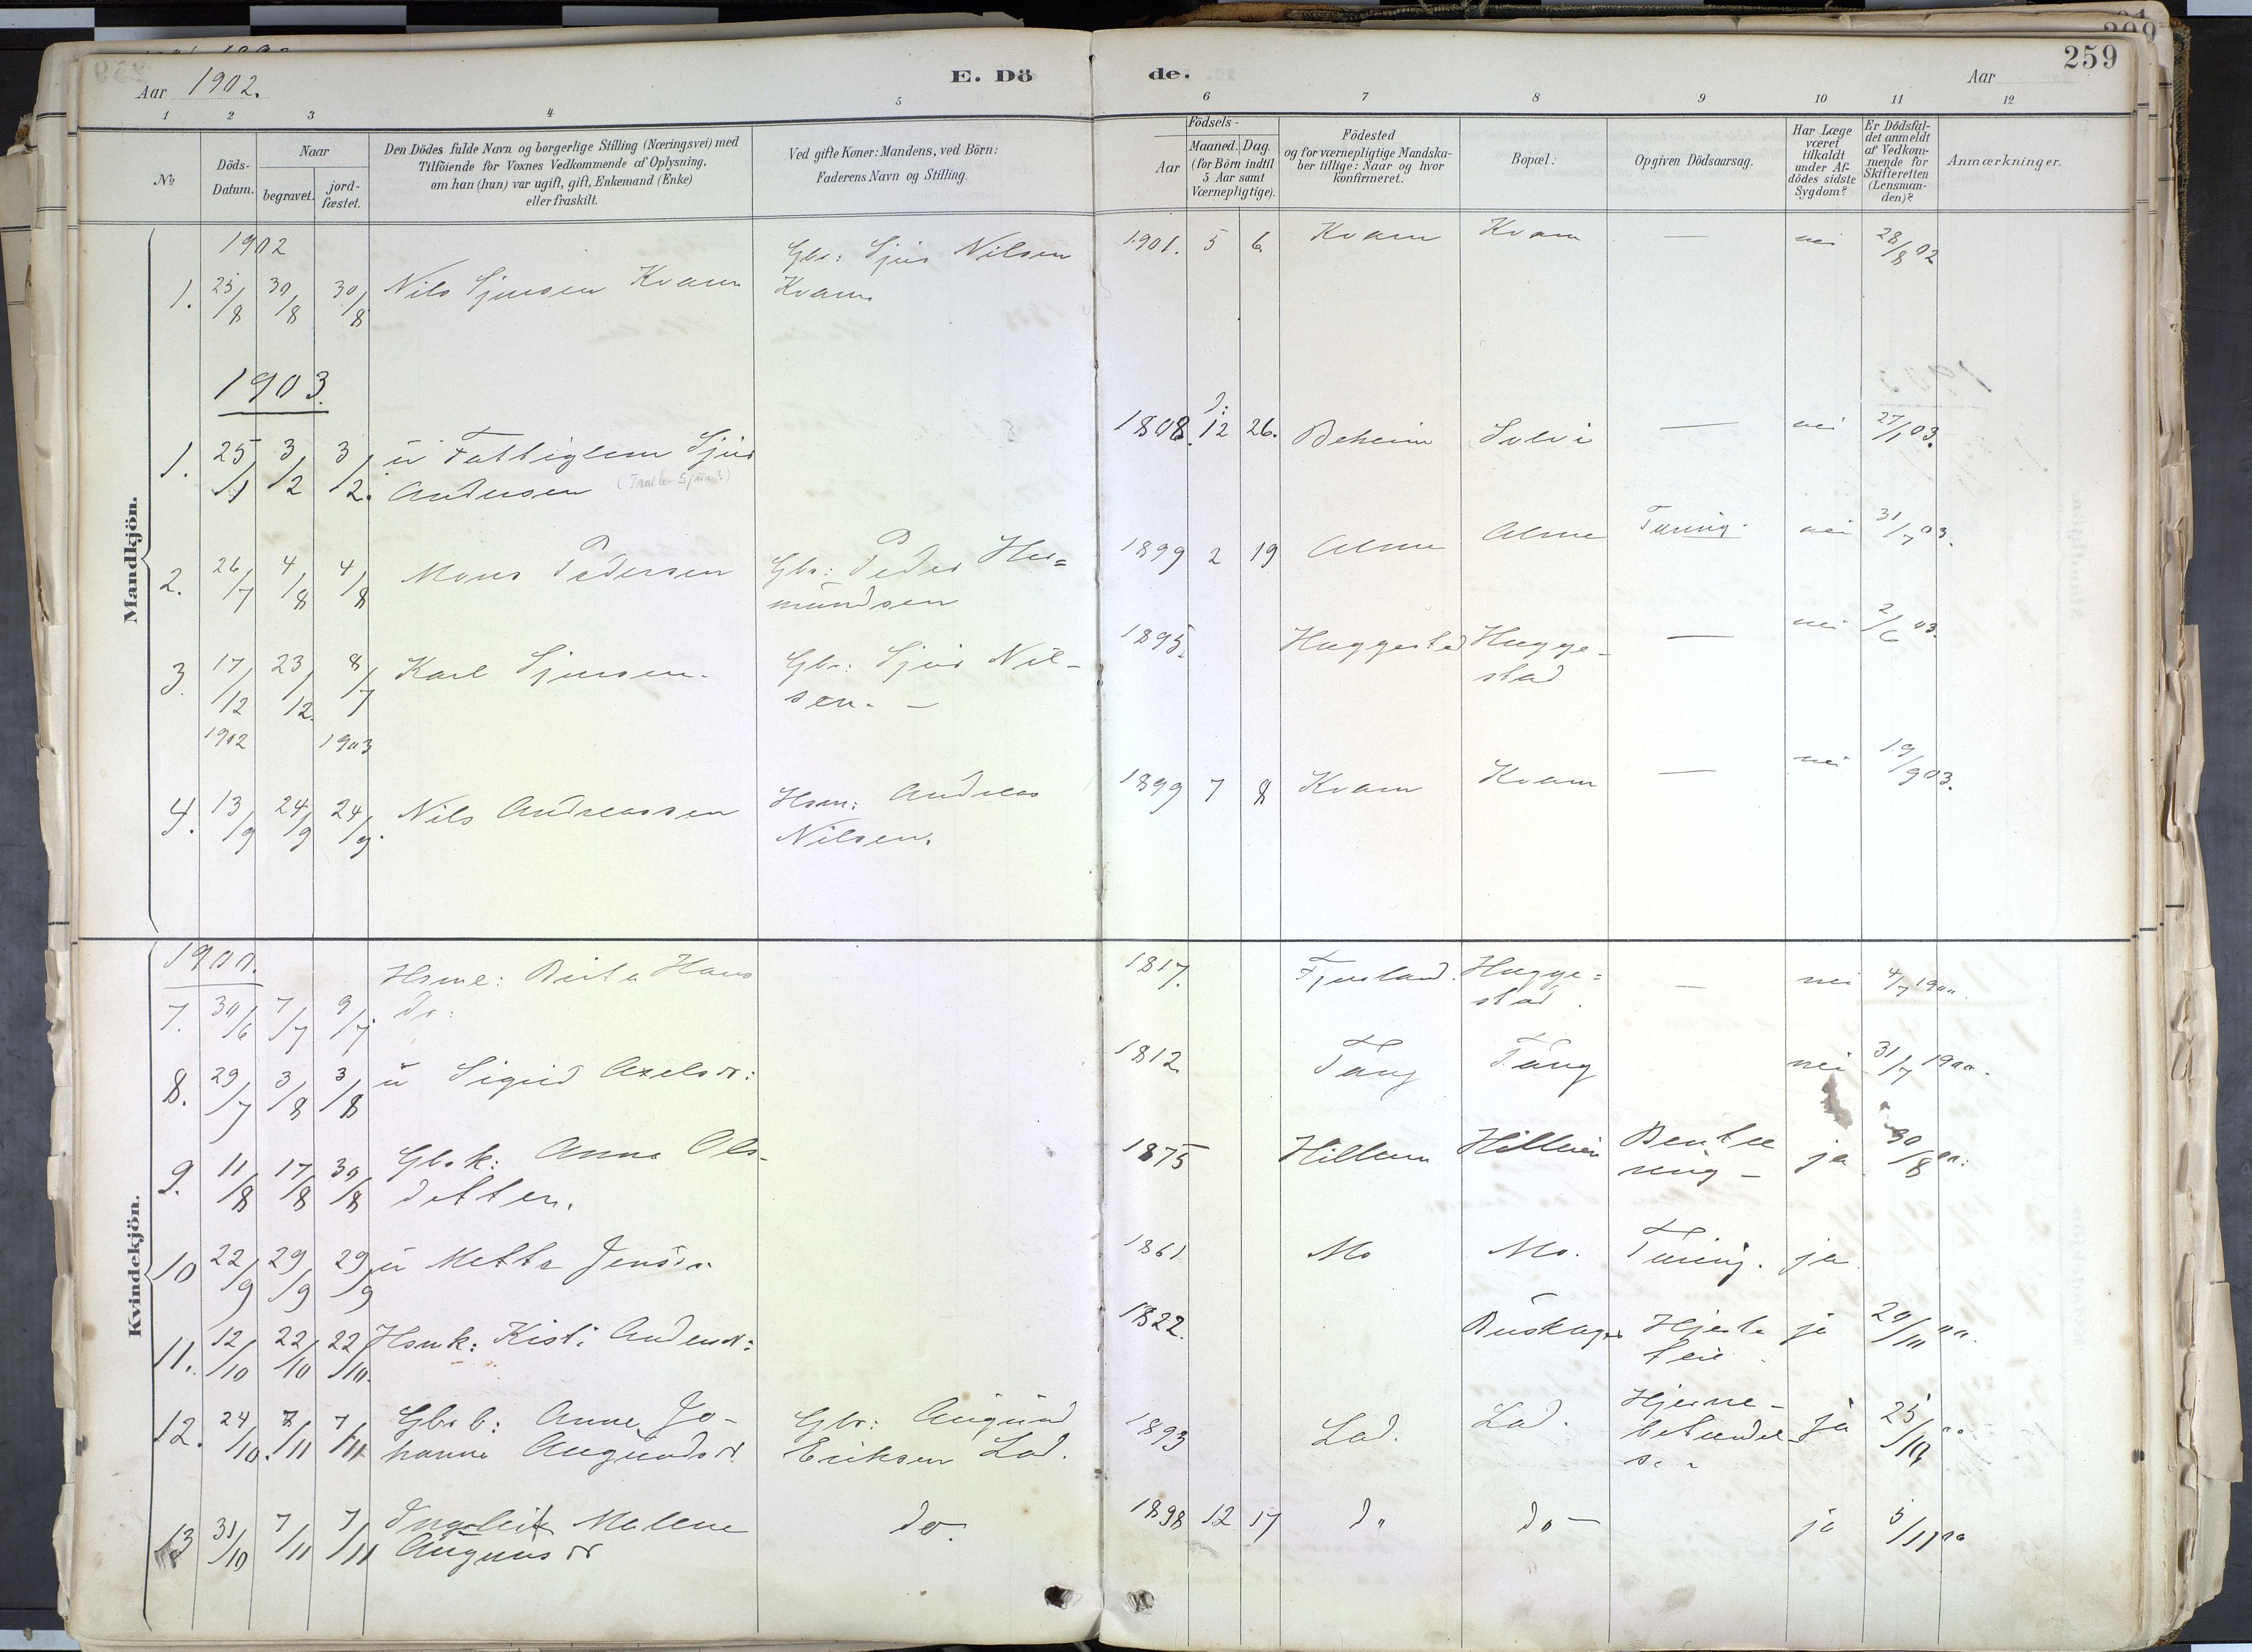 259
Aar 1902.
E. Dö
de.
Aar
1 2 3 4 5 6 7 8 9 10 11 12
No
Döds-
Datum.
Naar
begravet.
jord-
fæstet.
Den Dödes fulde Navn og borgerlige Stilling (Næringsvei) med
Tilföiende for Voxnes Vedkommende af Oplysning,
om han (hun) var ugift, gift, Enkemand (Enke)
eller fraskilt.
Ved gifte Koner: Mandens, ved Börn:
Faderens Navn og Stilling.
Födsels-
Aar
Maaned. Dag.
(for Börn indtil
5 Aar samt
Værnepligtige).
Födested
og for værnepligtige Mandska-
ber tillige: Naar og hvor
konfirmeret.
Bopæl.:
Opgiven Dödsaarsag.
Har Læge
været
tilkaldt
under Af-
dödes sidste
Sygdom?
Er Dödsfal-
det anmeldt
af Vedkom-
mende for
Skifteretten
(Lensman-
den)?
Anmærkninger.
Mandkjön.
1902
1. 25/8 30/8 30/8 Nils Sjursen Kvam
Gbr: Sjur Nilsen
Kvam
1901. 5 6 Kvam Kvam — nei 28/8 02
1903.
1. 25/1 3/2 3/2. u Fattiglem Sjur
Andersen
1808. 12 26. Solvi — nei 27/1 03.
2. 26/7 4/8 4/8 Mons Pedersen
Gbr: Peder Her=
mundsen
1899 2 19 Alme Alme Tæring. nei 31/7 03.
3. 17/12 23/12. 8/7 Karl Sjursen.
1902 1903
Gbr: Sjur Nil-
sen. —
1895. Huggestad Hugge-
stad
— nei 2/6 03.
4. 13/9 24/9 24/9. Nils Andreassen
Hsm: Andreas
Nilsen.
1899 7 8 Kvam Kvam — nei 19/9 03.
Kvindekjön.
1900.
7. 30/6 7/7 9/7. Hsme: Brita Hans
dr:
1817. Fjærland. Hugge=
stad.
— nei 4/7 1900.
8. 29/7 3/8 3/8 u Sigrid Axelsdr:
1812. Tang Tang nei 31/7 1900.
9. 11/8 17/8 30/8 Gbrk: Anna Ols-
datter.
1875 Hillern ja 30/8 00.
10 22/9 29/9 29/9 u Metta Jensdr
1861 Mo Mo. Tæring. ja
11. 12/10 22/10 22/10. Hsmk: Kisti Andersdr:
1822. Hjerte
feil
ja 20/11 00.
12. 24/10. 7/11 7/11 Gbrb: Anne Jo-
hanne Augundsdr
Gbr: Augund
Eriksen Lad.
1893 Lad. Lad. Hjerne-
betændel-
se
ja 25/10 00
13 31/10 7/11 7/11 Ingeleif Malene
Augunsdr
do.
1898 12 17 do do — ja 5/11 00